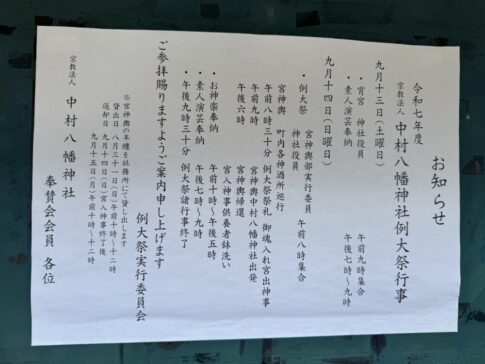 お知らせ
令和七年度
宗教法人 中村八幡神社例大祭行事
九月十三日(土曜日)
・宵宮 神社役員 午前九時集合
・素人演芸奉納 午後七時〜九時
九月十四日(日曜日)
・例大祭 宮神輿部実行委員 午前八時集合
神社役員
宮神輿 町内各神酒所巡行
午前八時三十分 例大祭祭礼 御魂入れ宮出神事
午前九時 宮神輿中村八幡神社出発
午後六時 宮神輿帰還
宮入神事供養者鉢洗い
・お神楽奉納 午前十時〜午後五時
・素人演芸奉納 午後七時〜九時
・午後九時三十分 例大祭諸行事終了
ご参拝賜りますようご案内申し上げます
例大祭実行委員会
※宮神輿の本纏を社務所にて貸し出します
貸出日 八月三十一日(日)午前十時〜十二時
返却日 九月十四日(日)宮入神事終了後
九月十五日(月)午前十時〜十二時
宗教法人 中村八幡神社
奉賛会会員 各位